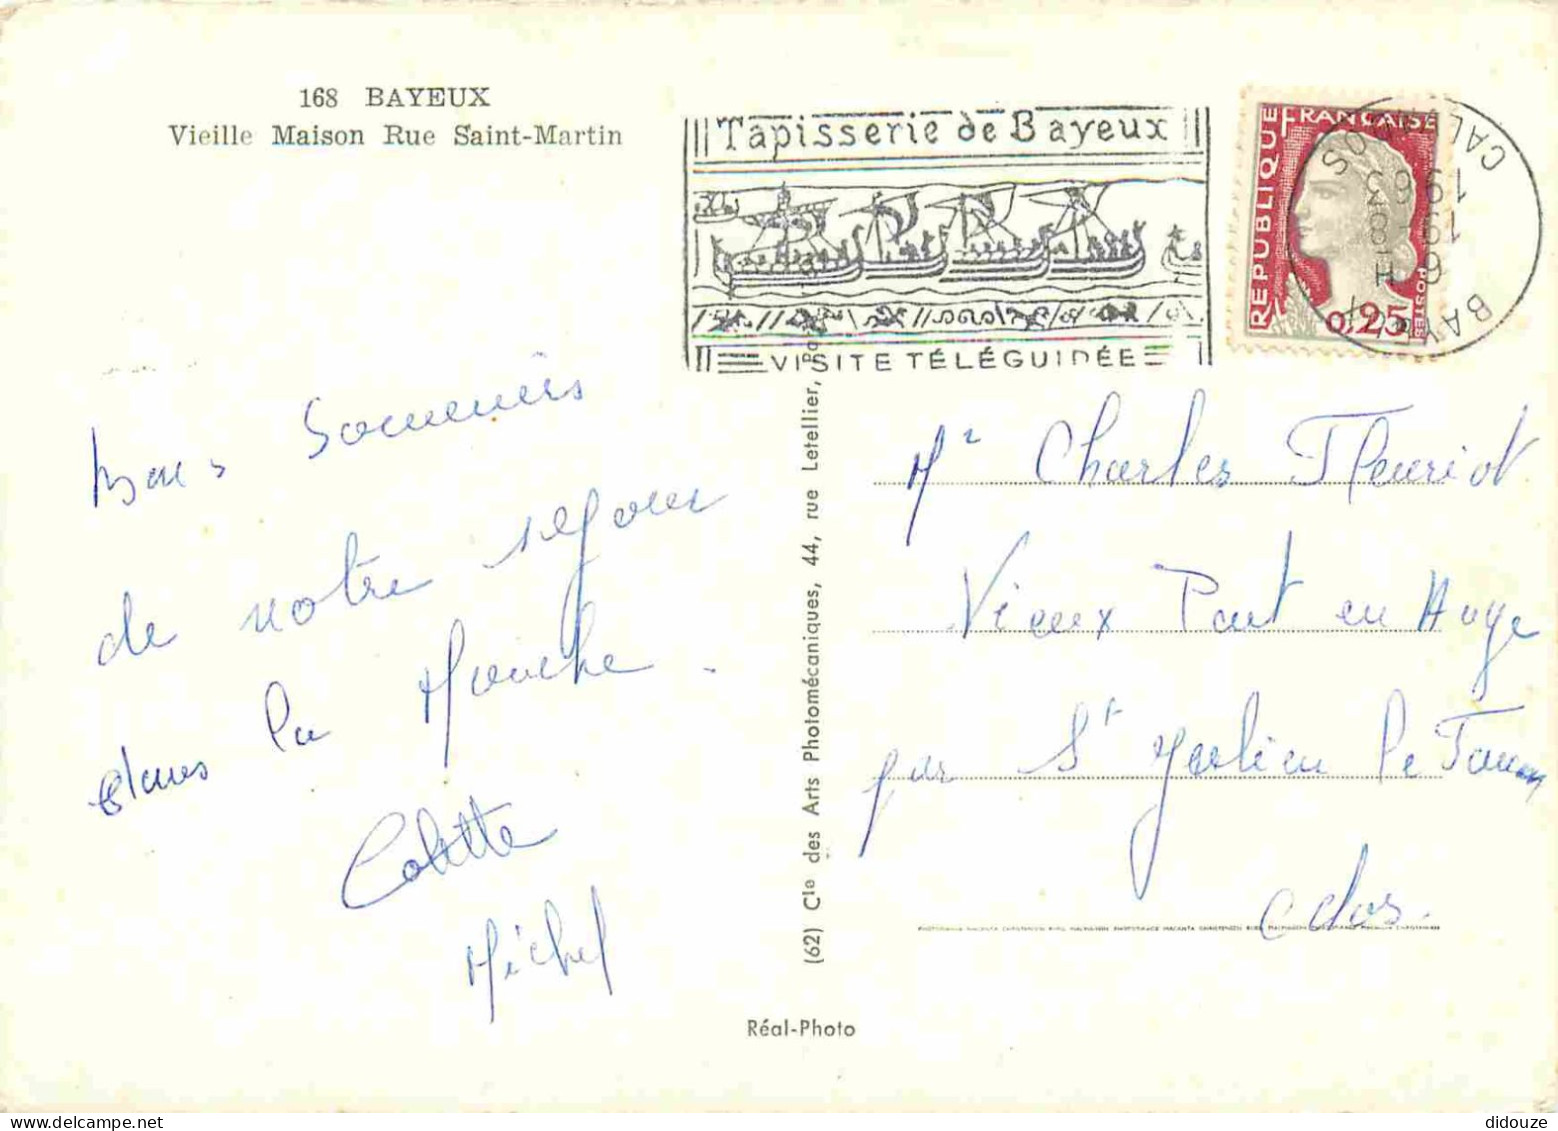 168 BAYEUX
Vieille Maison Rue Saint-Martin
Tapisserie de Bayeux
VISITE TÉLÉGUIDÉE
RÉPUBLIQUE FRANÇAISE
POSTES
0,25
BAYEUX
CALVADOS
Bons Souvenirs
de notre séjour
dans la Manche.
Colette
Michel
Mr Charles Fleuriot
Vieux Pont en Auge
par St Julien le
Cdos.
(62) Cie des Arts Photomécaniques, 44, rue Letellier,
Réal-Photo